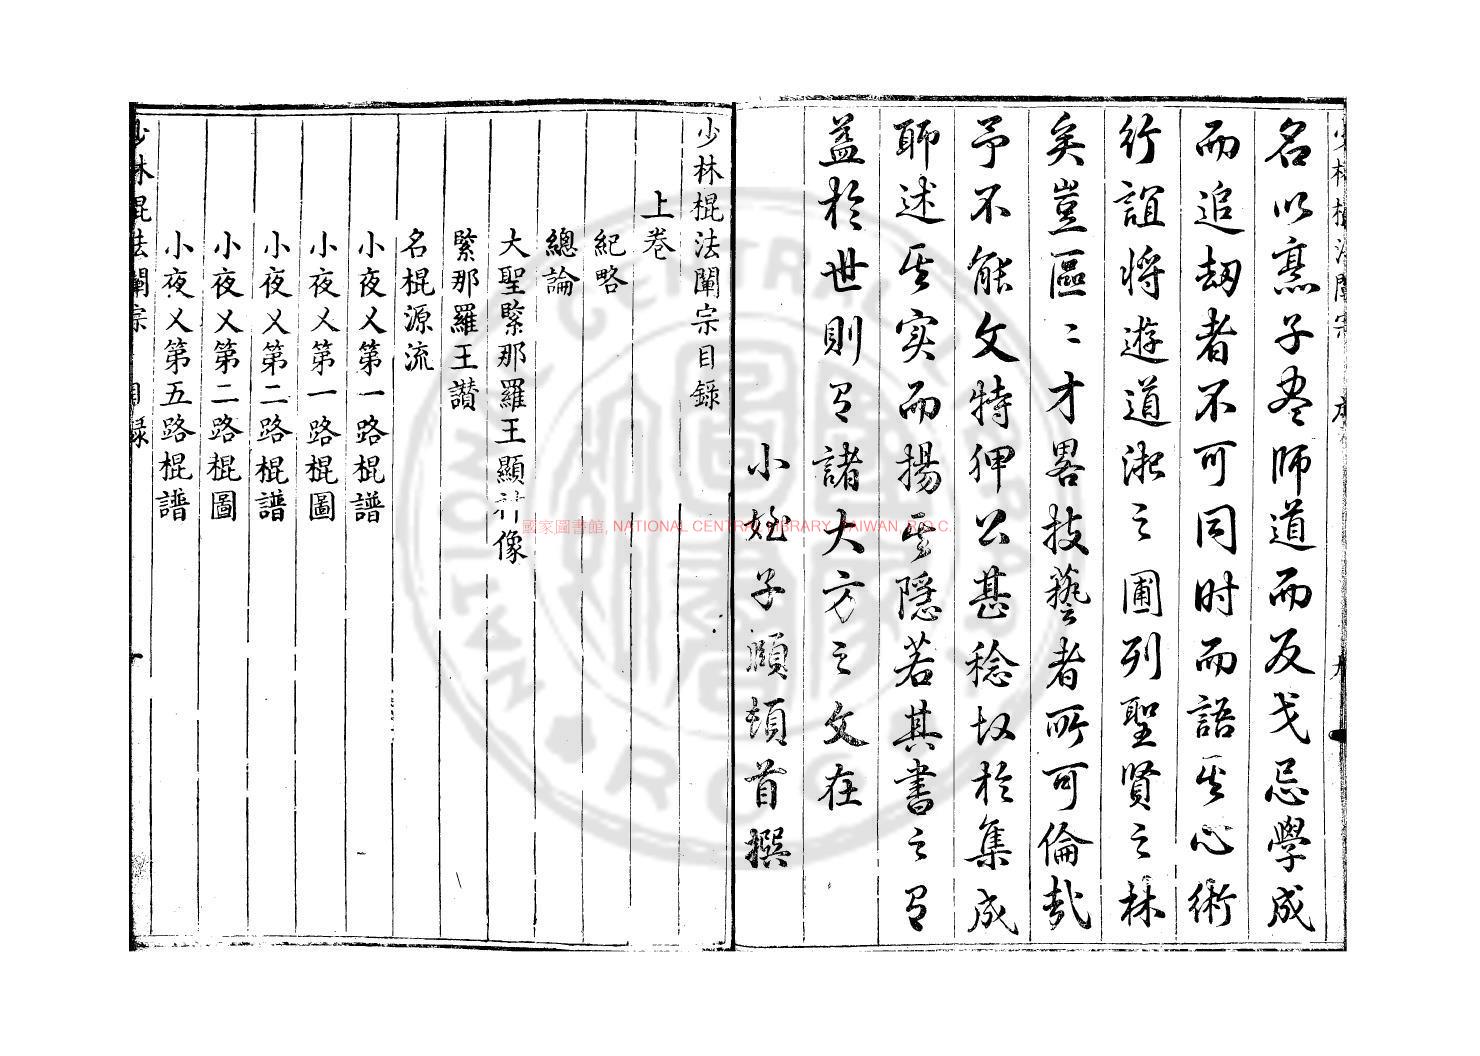 名以熹子叁師道而反戈忌學成
而追刼者不可同时而語其心術
行誼將遊道淑之圃列聖賢之林
矣豈區〻才畧技藝者所可倫哉
予不能文特狎公甚稔故於集成
聊述其实而揚其隱若其書之有
益於世則有諸大方之文在
小姪子頤頓首撰
少林棍法闡宗目錄
上巻
紀略
總論
大聖緊那羅王顯神像
緊那羅王讃
名棍源流
小夜乂第一路棍譜
小夜乂第一路棍圖
小夜乂第二路棍譜
小夜乂第二路棍圖
小夜乂第五路棍譜
少林棍法闡宗 目錄
國家圖書館, NATIONAL CENTRAL LIBRARY, TAIWAN, R.O.C.